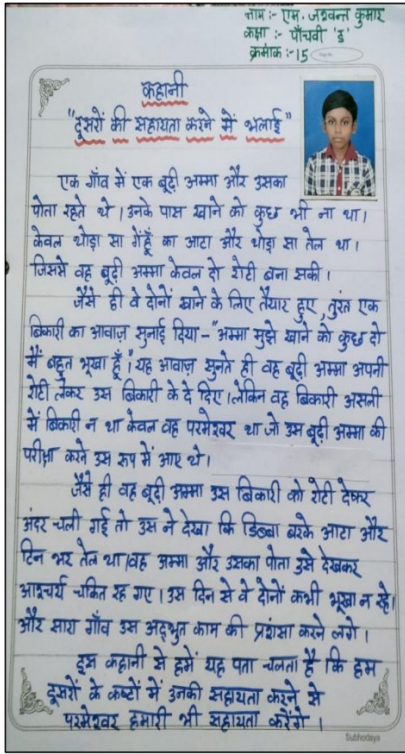 नाम :- एम. जश्वन्त कुमार
कक्षा :- पाँचवी 'ई'
क्रमांक :-15
कहानी
"दुसरों की सहायता करने में भलाई"
एक गाँव में एक बूढ़ी अम्मा और उसका
पोता रहते थे । उनके पास खाने को कुछ भी ना था।
केवल थोड़ा सा गेहूँ का आटा और थोड़ा सा तेल था।
जिससे वह बूढ़ी अम्मा केवल दो रोटी बना सकी ।
जैसे ही वे दोनों खाने के लिए तैयार हुए, तुरंत एक
बिकारी का आवाज़ सुनाई दिया - "अम्मा मुझे खाने को कुछ दो
मैं बहुत भूखा हूँ"। यह आवाज़ सुनते ही वह बूढ़ी अम्मा अपनी
रोटी लेकर उस बिकारी के दे दिए । लेकिन वह बिकारी असली
में बिकारी न था केवल वह परमेश्वर था जो उस बूढ़ी अम्मा की
परीक्षा करने इस रूप में आए थे।
जैसे ही वह बूढ़ी अम्मा उस बिकारी को रोटी देकर
अंदर चली गई तो उस ने देखा कि डिब्बा बरके आटा और
टिन भर तेल था। वह अम्मा और उसका पोता उसे देखकर
आश्चर्य चकित रह गए । उस दिन से वे दोनों कभी भूखा न रहे।
और सारा गाँव उस अद्भुत काम की प्रशंसा करने लगे ।
इस कहानी से हमें यह पता चलता है कि हम
दूसरों के कष्टों में उनकी सहायता करने से
परमेश्वर हमारी भी सहायता करेंगे ।
Subhodaya